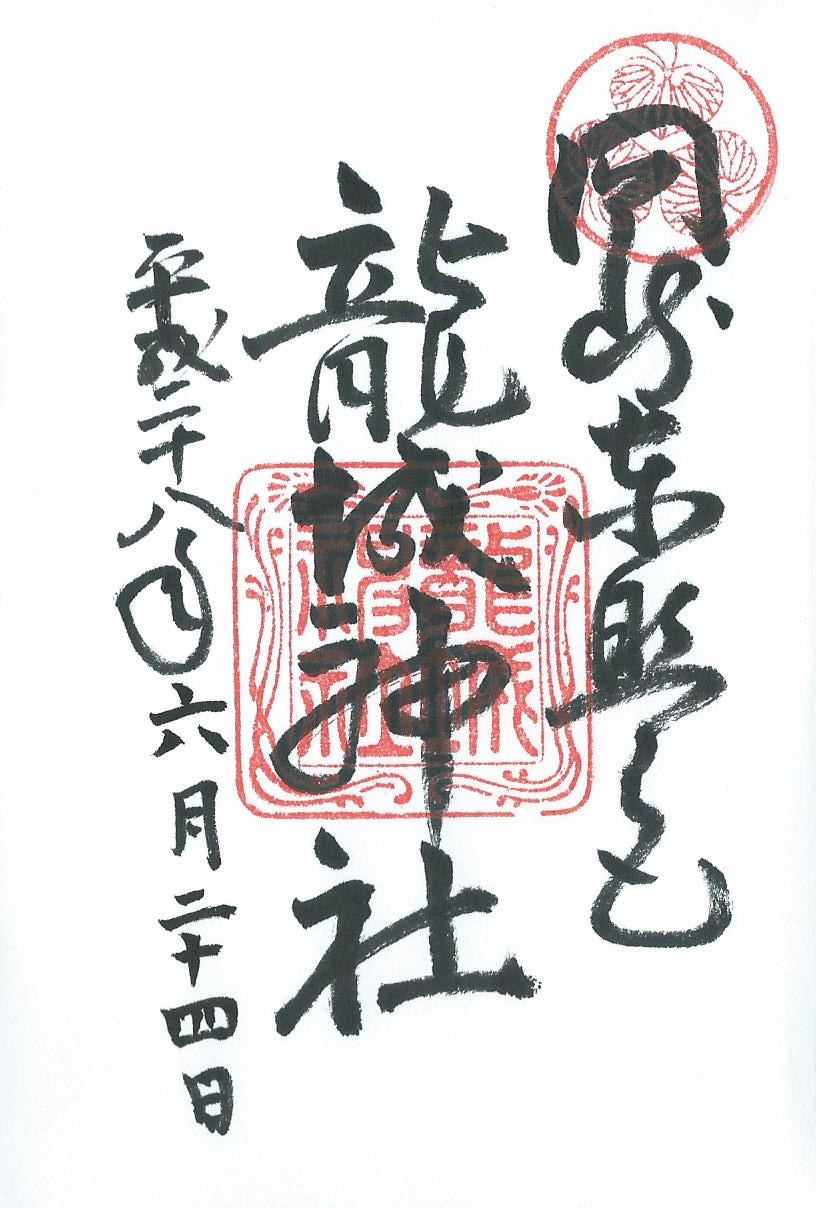 岡崎東照宮
龍城神社
平成二十八年六月二十四日
龍城
神社